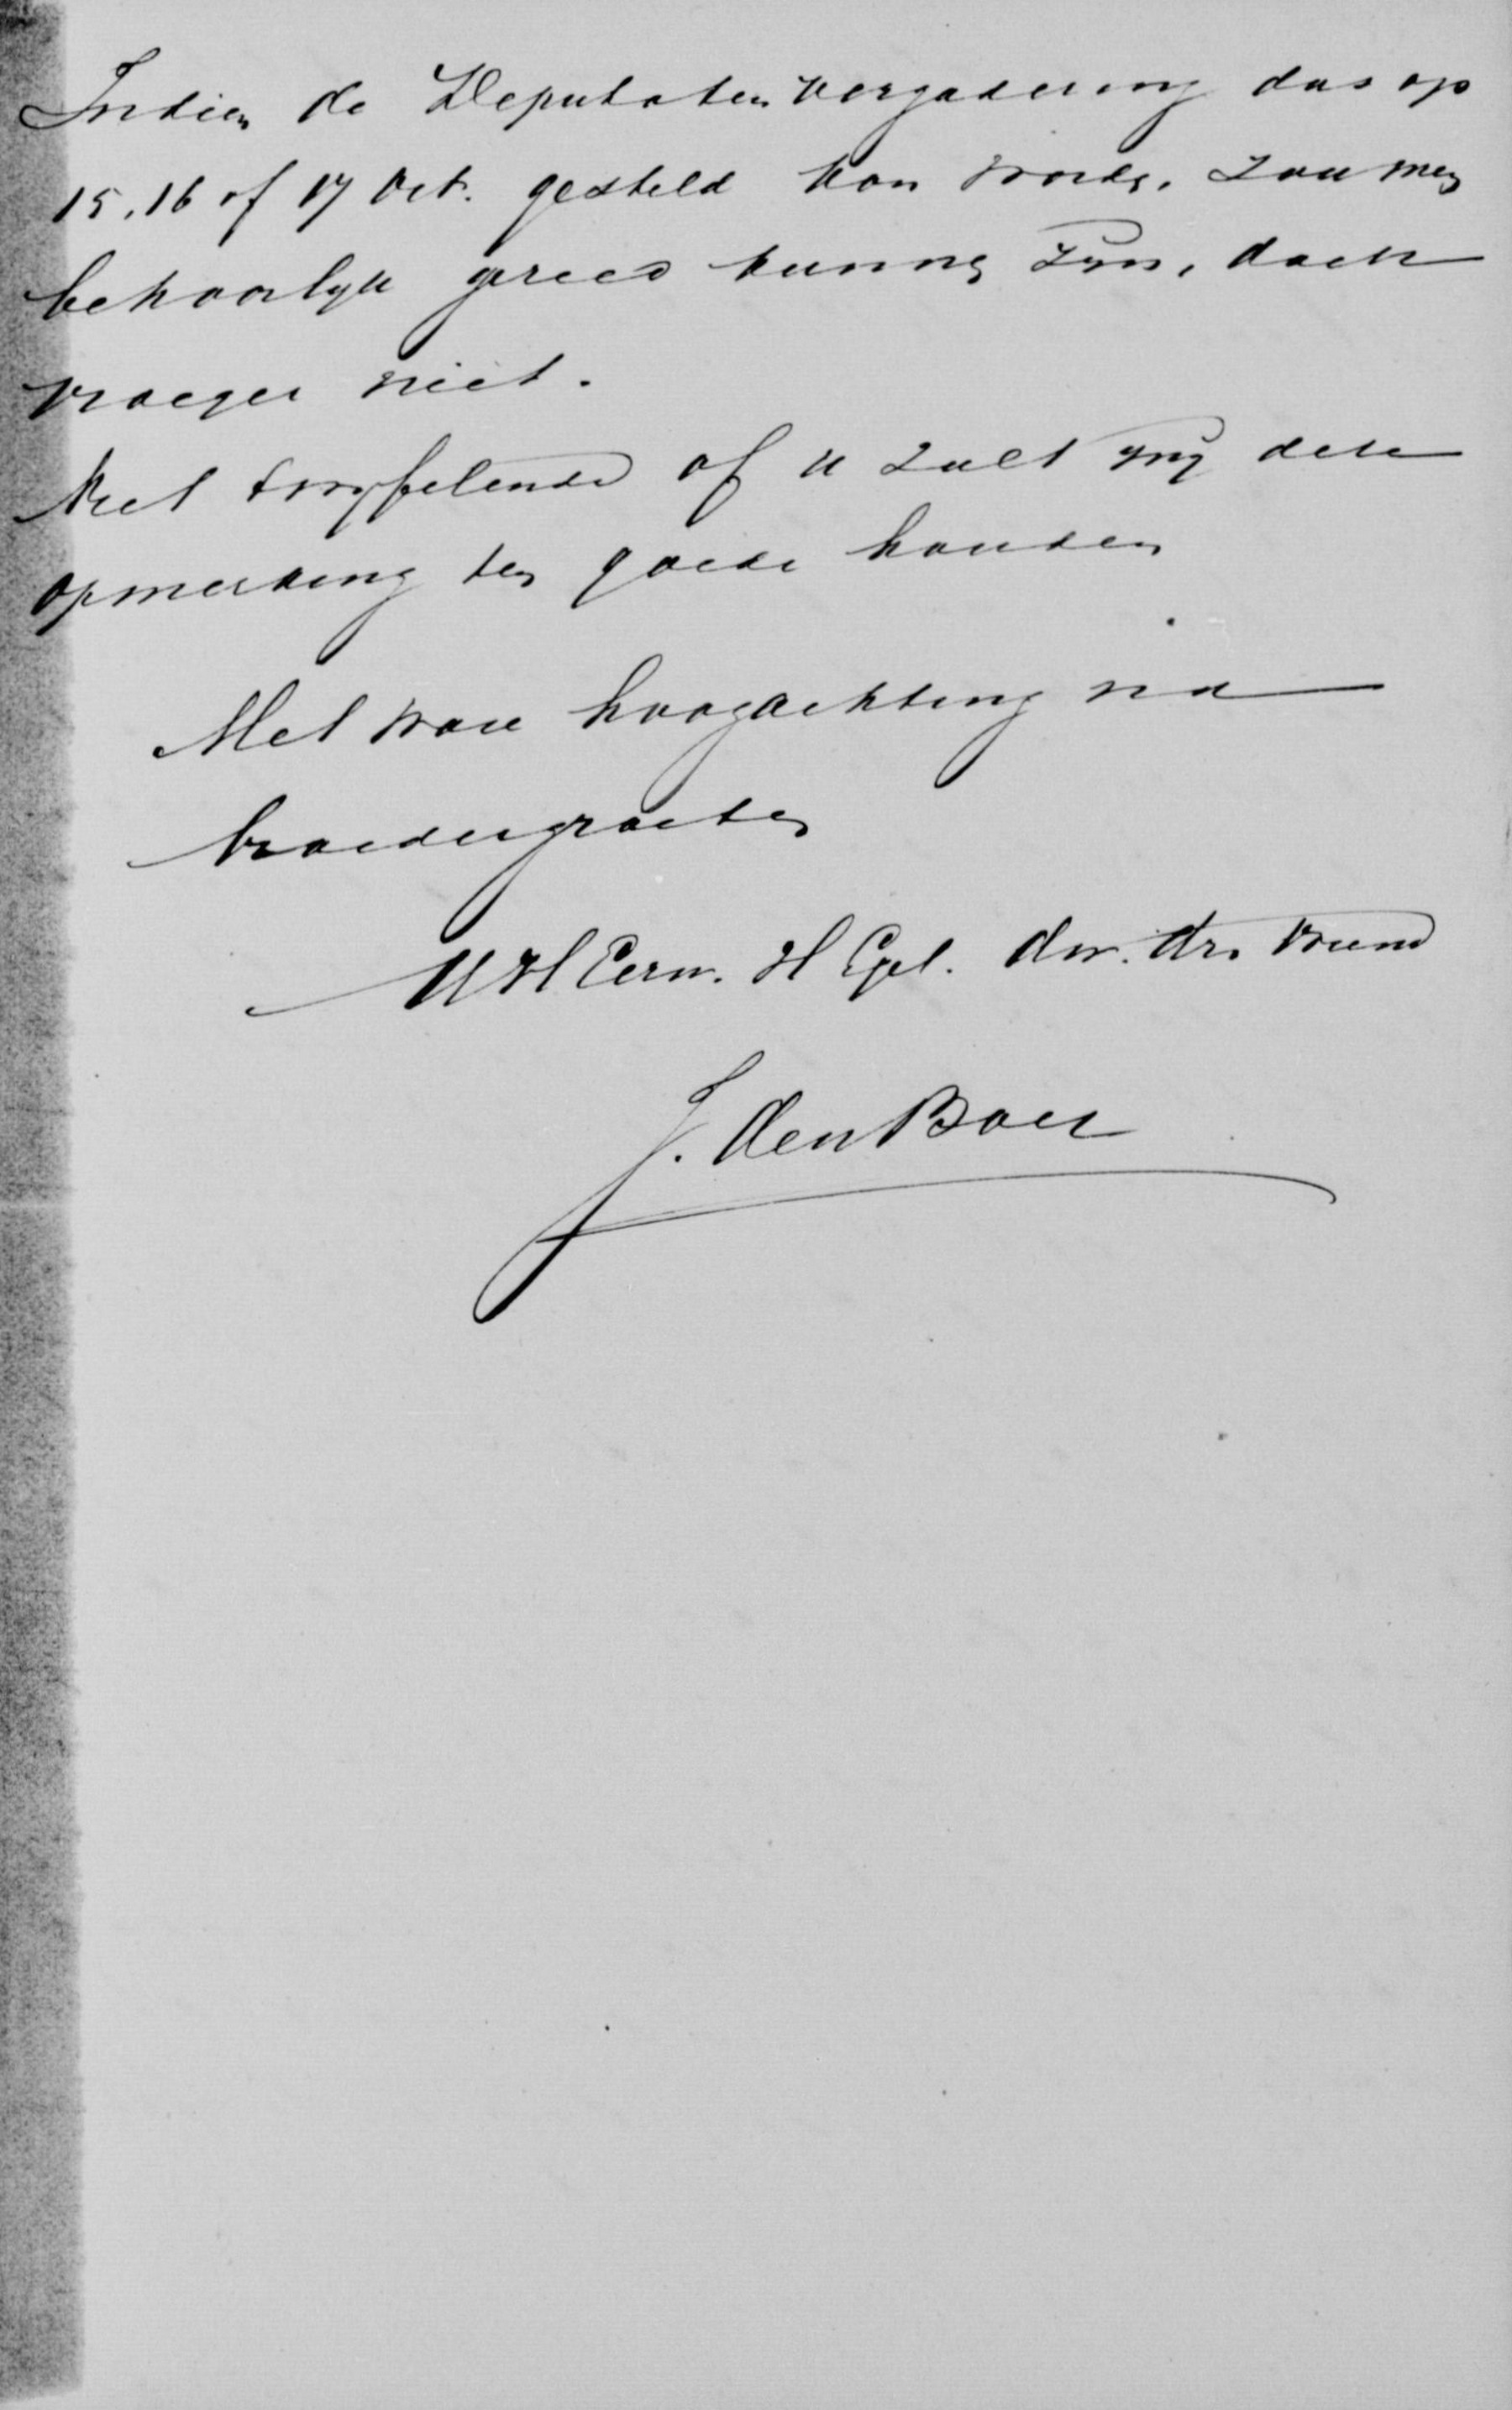 Indien de Deputatenvergadering dus op
15, 16 of 17 Oct. gesteld kon worden, zou men
behoorlijk gereed kunnen zijn, doch
vroeger niet.
Niet twijfelende of u zult mij deze
opmerking ten goede houden
Met ware hoogachting na
broedergroeten
UHEerw. HGel. dw. dr. vriend
J. den Boer